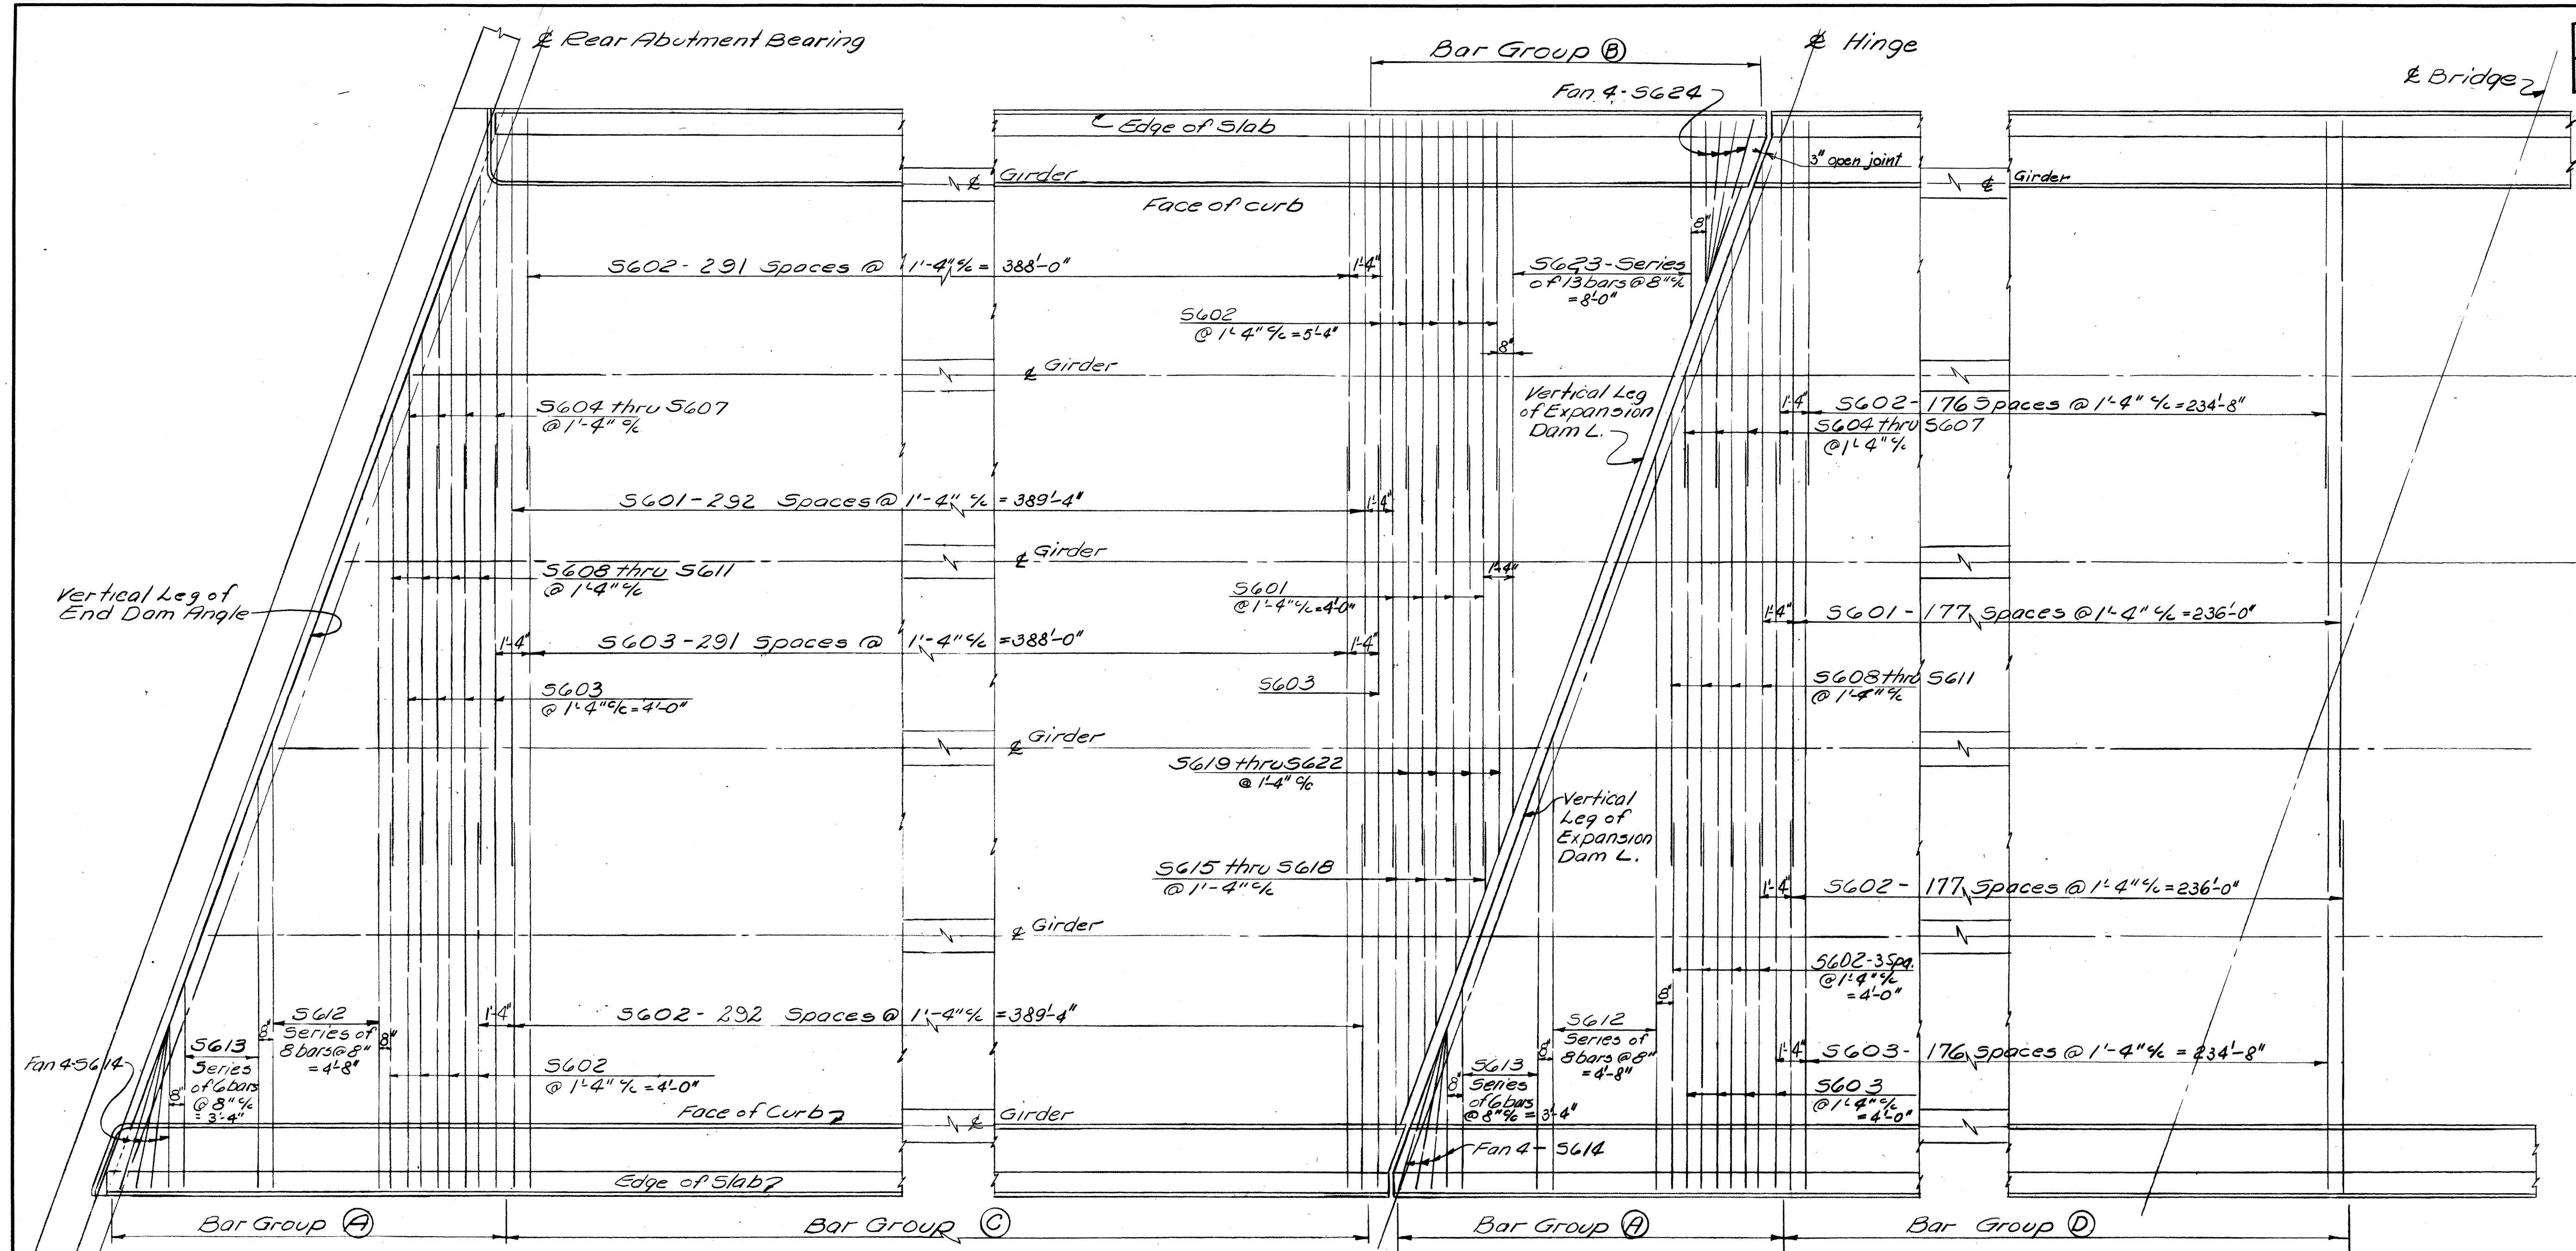 ℄ Rear Abutment Bearing
Bar Group Ⓑ
℄ Hinge
℄ Bridge
Fan 4-S624
Edge of Slab
3" open joint
℄ Girder
℄ Girder
Face of curb
8"
S602-291 Spaces @ 1'-4" c/c = 388'-0"
1'-4"
S623-Series
of 13 bars @ 8" c/c
= 8'-0"
S602
@ 1'-4" c/c = 5'-4"
8"
℄ Girder
Vertical Leg
of Expansion
Dam L.
S604 thru S607
@ 1'-4" c/c
1'-4"
S602-176 Spaces @ 1'-4" c/c = 234'-8"
S604 thru S607
@ 1'-4" c/c
S601-292 Spaces @ 1'-4" c/c = 389'-4"
1'-4"
℄ Girder
S608 thru S611
@ 1'-4" c/c
1'-4"
Vertical Leg of
End Dam Angle
S601
@ 1'-4" c/c = 4'-0"
1'-4"
S601-177 Spaces @ 1'-4" c/c = 236'-0"
1'-4"
S603-291 Spaces @ 1'-4" c/c = 388'-0"
1'-4"
S603
@ 1'-4" c/c = 4'-0"
S603
S608 thru S611
@ 1'-4" c/c
℄ Girder
S619 thru S622
@ 1'-4" c/c
Vertical
Leg of
Expansion
Dam L.
S615 thru S618
@ 1'-4" c/c
1'-4"
S602-177 Spaces @ 1'-4" c/c = 236'-0"
℄ Girder
S602-3 Spa.
@ 1'-4" c/c
= 4'-0"
8"
1'-4"
S602-292 Spaces @ 1'-4" c/c = 389'-4"
8"
S612
Series of
8 bars @ 8"
= 4'-8"
8"
S613
Series
of 6 bars
@ 8" c/c
= 3'-4"
8"
Fan 4-S614
S602
@ 1'-4" c/c = 4'-0"
8"
S612
Series of
8 bars @ 8"
= 4'-8"
8"
S613
Series
of 6 bars
@ 8" c/c = 3'-4"
1'-4"
S603-176 Spaces @ 1'-4" c/c = 234'-8"
S603
@ 1'-4" c/c
= 4'-0"
Face of Curb
℄ Girder
Fan 4-S614
Edge of Slab
Bar Group Ⓐ
Bar Group Ⓒ
Bar Group Ⓐ
Bar Group Ⓓ